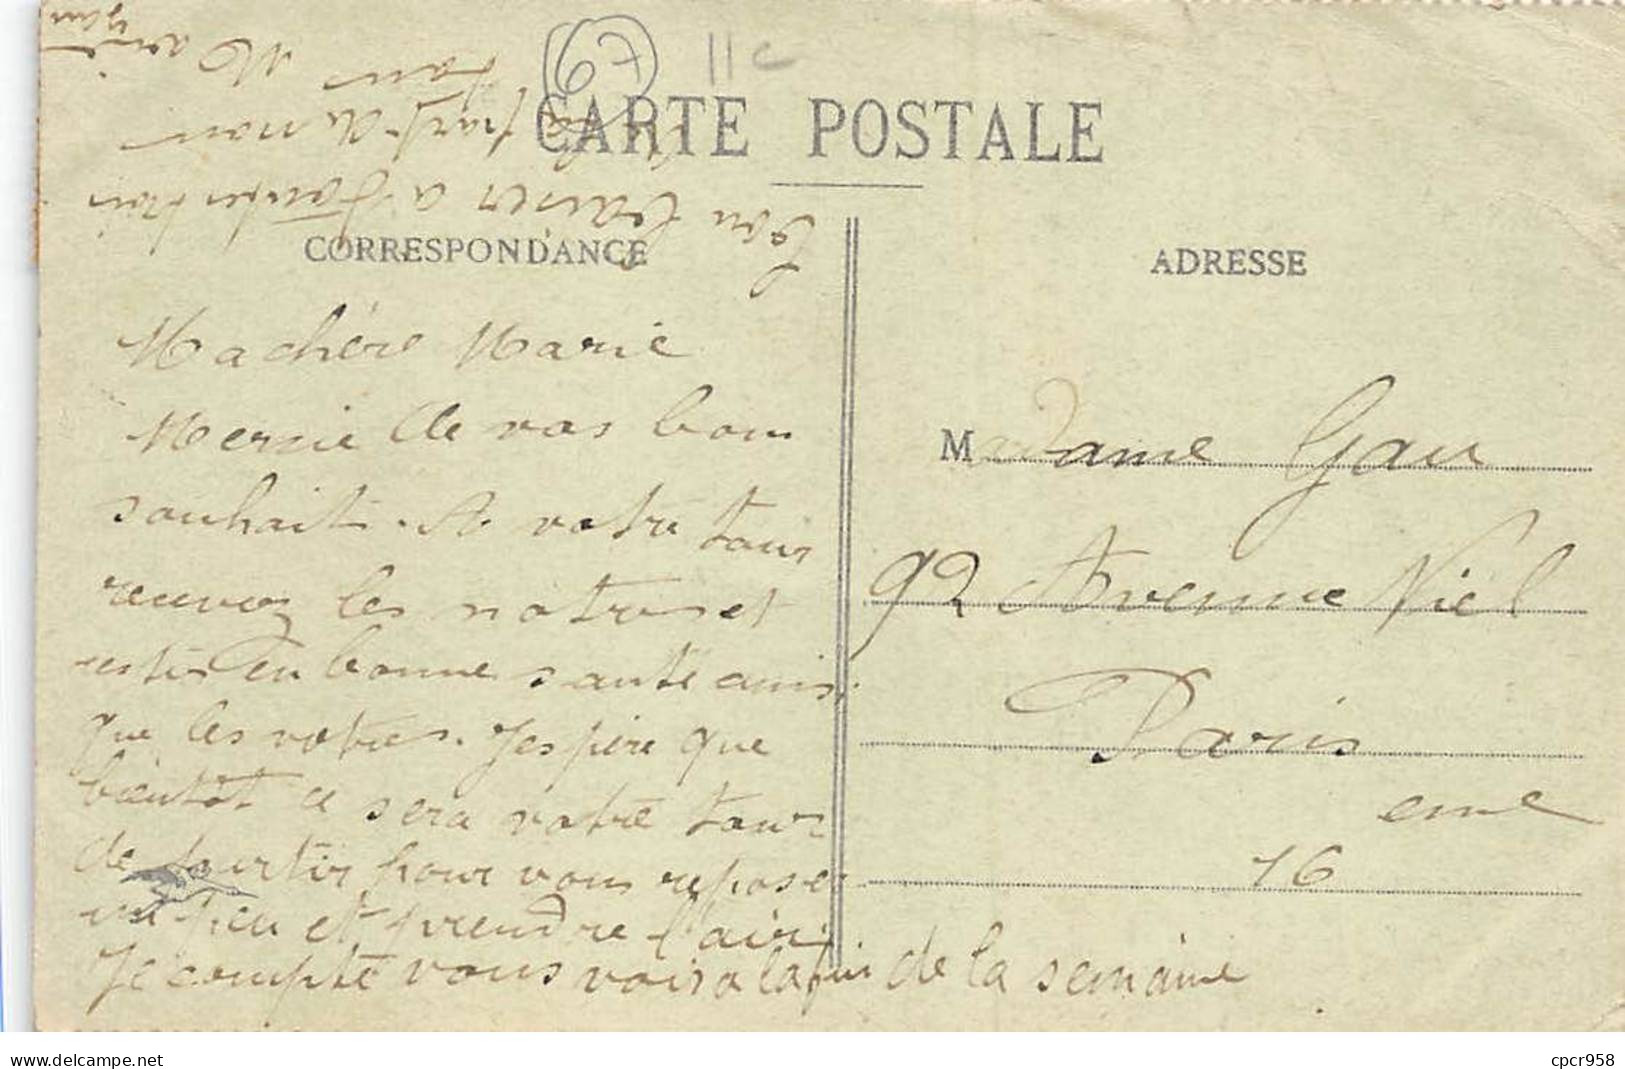 11c
CARTE POSTALE
CORRESPONDANCE
ADRESSE
Ma chère Marie
Mersie de vos bons
souhait. A votre tour
recevez les notres et
restir en bonne sante ainsi
que les votres. J'espère que
bientôt ce sera votre tour
de sourtir pour vous reposer
un peu et prendre l'air
Je compte vous voir a la fin de la semaine
Bon baiser a
part de mon
Marie
Madame Gau
92 Avenue Niel
Paris
16 eme
delcampe.net
cpcr958